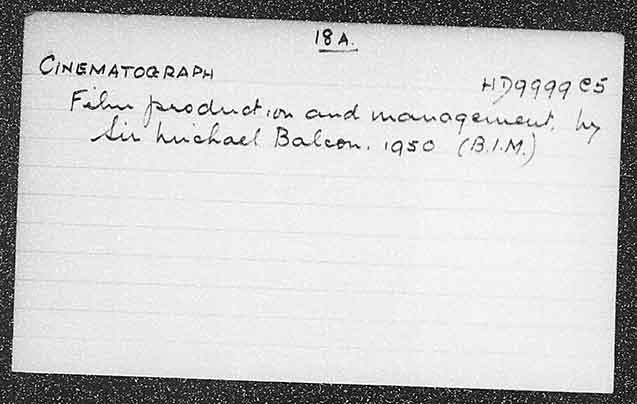 18A.
CINEMATOGRAPH
HD9999 C5
Film production and management, by
Sir Michael Balcon. 1950 (B.I.M.)